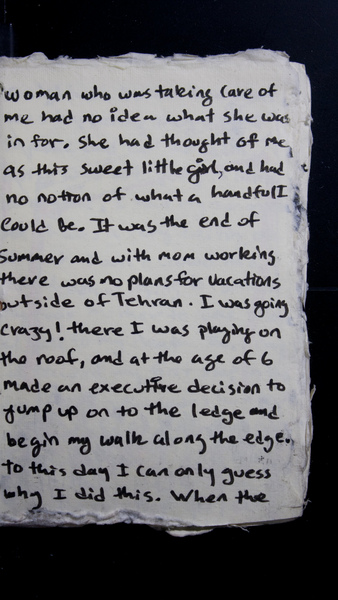 woman who was taking care of
me had no idea what she was
in for. She had thought of me,
as this sweet little girl, and had
no notion of what a handful I
could be. It was the end of
summer and with mom working
there was no plans for vacations
outside of Tehran. I was going
crazy! there I was playing on
the roof, and at the age of 6
made an executive decision to
jump up on to the ledge and
begin my walk along the edge.
to this day I can only guess
why I did this. When the